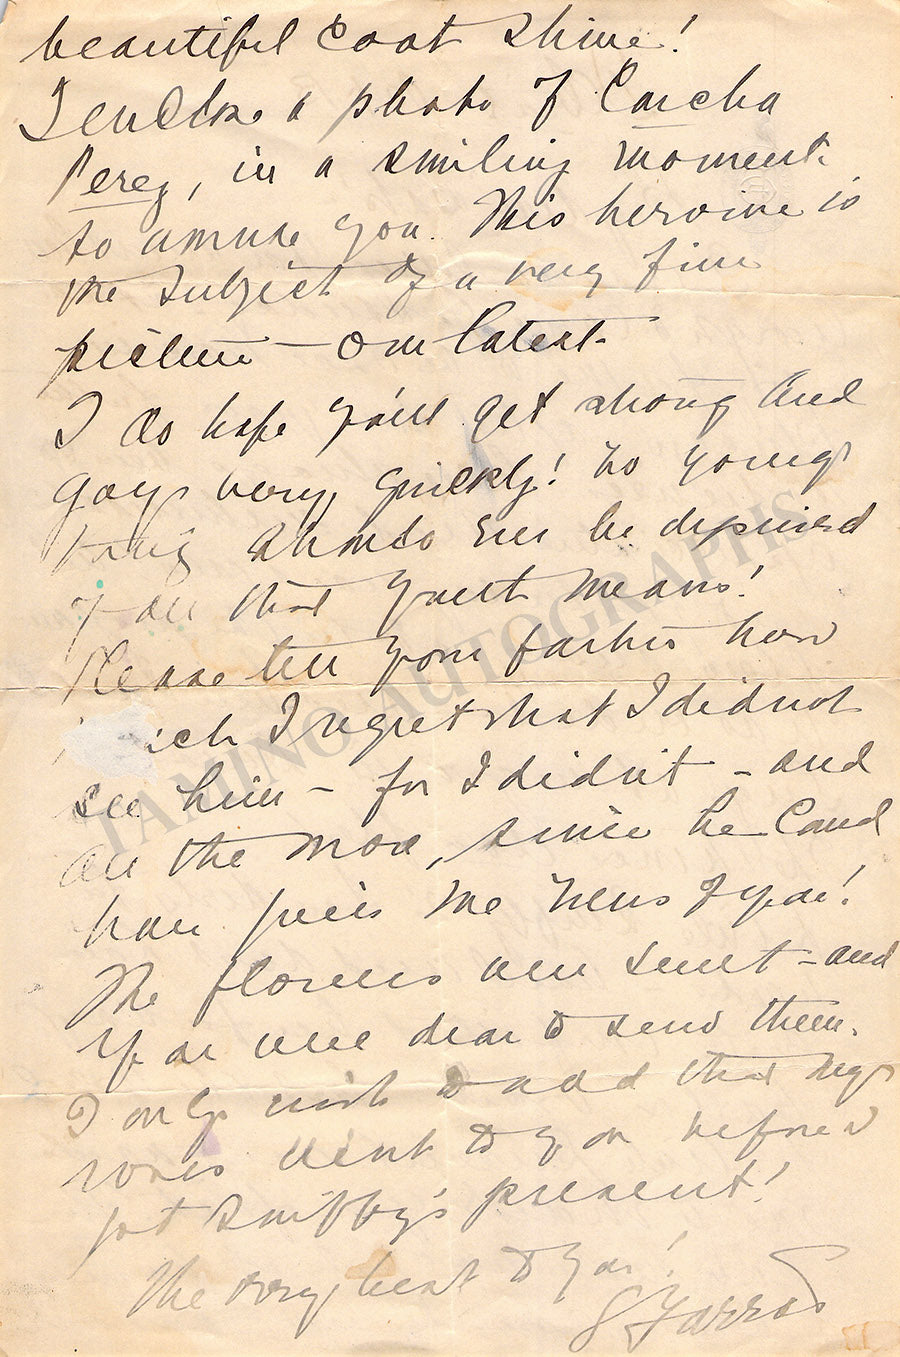 beautiful coat shine!
I enclose a photo of Concha
Perez, in a smiling moment
to amuse you. This heroine is
the subject of a very fine
picture – our latest.
I do hope you'll get strong and
gay very quickly! No young
thing should ever be deprived
of all that youth means!
Please tell your father how
much I regret that I did not
see him – for I didn't – and
all the more, since he could
have given me news of you!
The flowers were sweet – and
you were dear to send them.
I only wish to add that my
roses went to you before I
got Sniffy's present!
The very best to you!
G Farrar
TAMINO AUTOGRAPHS